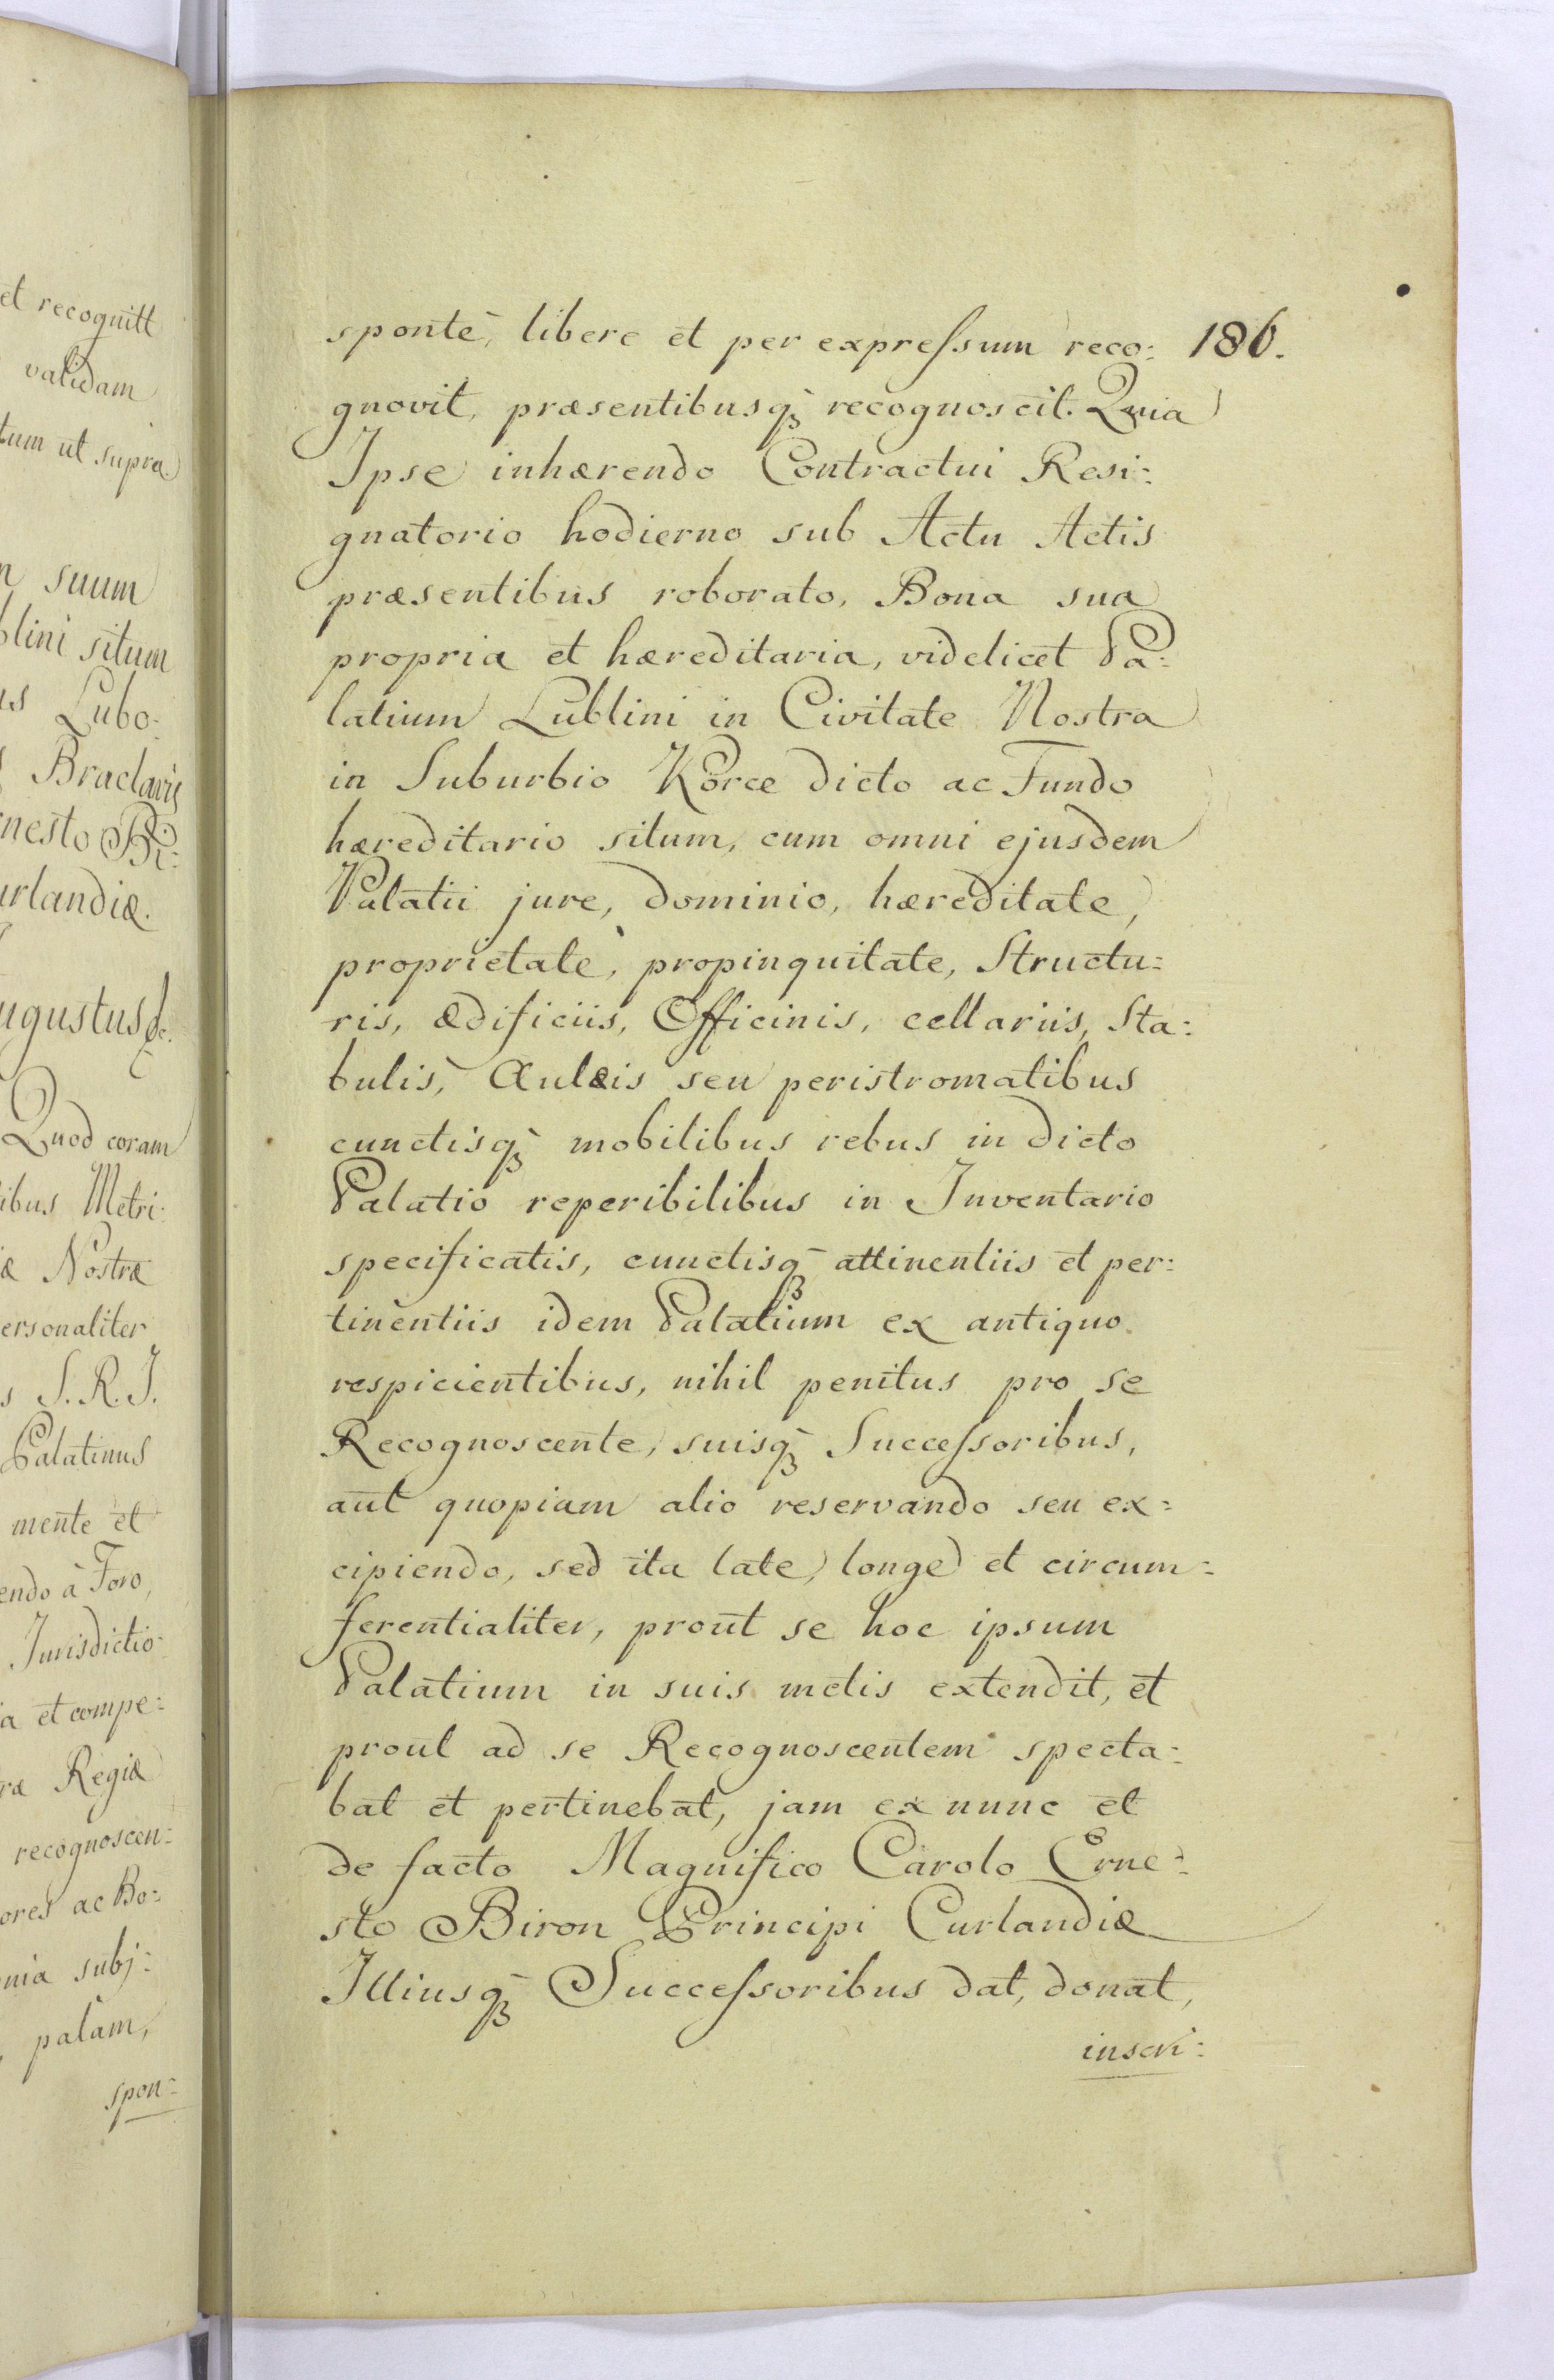 et recognitt
validam
tum ut supra
suum
blini situm
Lubo:
Braclaviæ
nesto Bi:
urlandiæ.
ugustus &c.
Quod coram
ibus Metri:
æ Nostræ
ersonaliter
S. R. J.
Palatinus
mente et
endo à Foro,
Jurisdictio:
a et compe:
ræ Regiæ
recognoscen:
ores ac Bo:
nia subj:
palàm,
spon:
186.
sponte, libere et per expreſsum reco:
gnovit, præsentibusq₃ recognoscit. Quia
Ipse inhærendo Contractui Resi:
gnatorio hodierno sub Actu Actis
præsentibus roborato, Bona sua
propria et hæreditaria, videlicet Pa:
latium Lublini in Civitate Nostra
in Suburbio Korce dicto ac Fundo
hæreditario situm, cum omni ejusdem
Palatii jure, dominio, hæreditate,
proprietate, propinquitate, Structu:
ris, ædificiis, Officinis, cellariis, Sta:
bulis, Aulæis seu peristromatibus
cunctisq₃ mobilibus rebus in dicto
Palatio reperibilibus in Inventario
specificatis, cunctisq₃ attinentiis et per:
tinentiis idem Palatium ex antiquo
respicientibus, nihil penitus pro se
Recognoscente, suisq₃ Succeſsoribus,
aut quopiam alio reservando seu ex:
cipiendo, sed ita late, longe et circum:
ferentialiter, prout se hoc ipsum
Palatium in suis metis extendit, et
prout ad se Recognoscentem specta:
bat et pertinebat, jam ex nunc et
de facto Magnifico Carolo Erne:
sto Biron Principi Curlandiæ
Illiusq₃ Succeſsoribus dat, donat,
inscri: